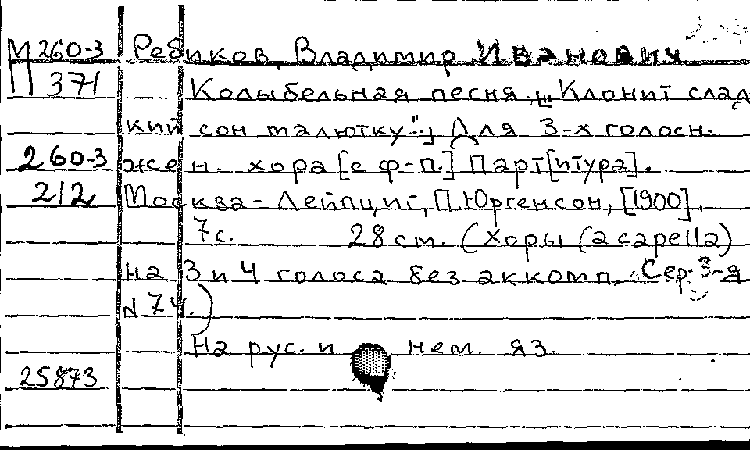 М 260-3 Ребиков, Владимир Иванович
П 371 Колыбельная песня „Клонит слад
кий сон малютку". Для 3-х голосн.
260-3 жен. хора [с ф-п.] Парт[итура].
212 Москва - Лейпциг, П. Юргенсон, [1900].
7с. 28 см. (Хоры (a capella)
на 3 и 4 голоса без аккомп. Сер. 3-я
N 74.)
На рус. и нем. яз.
25873